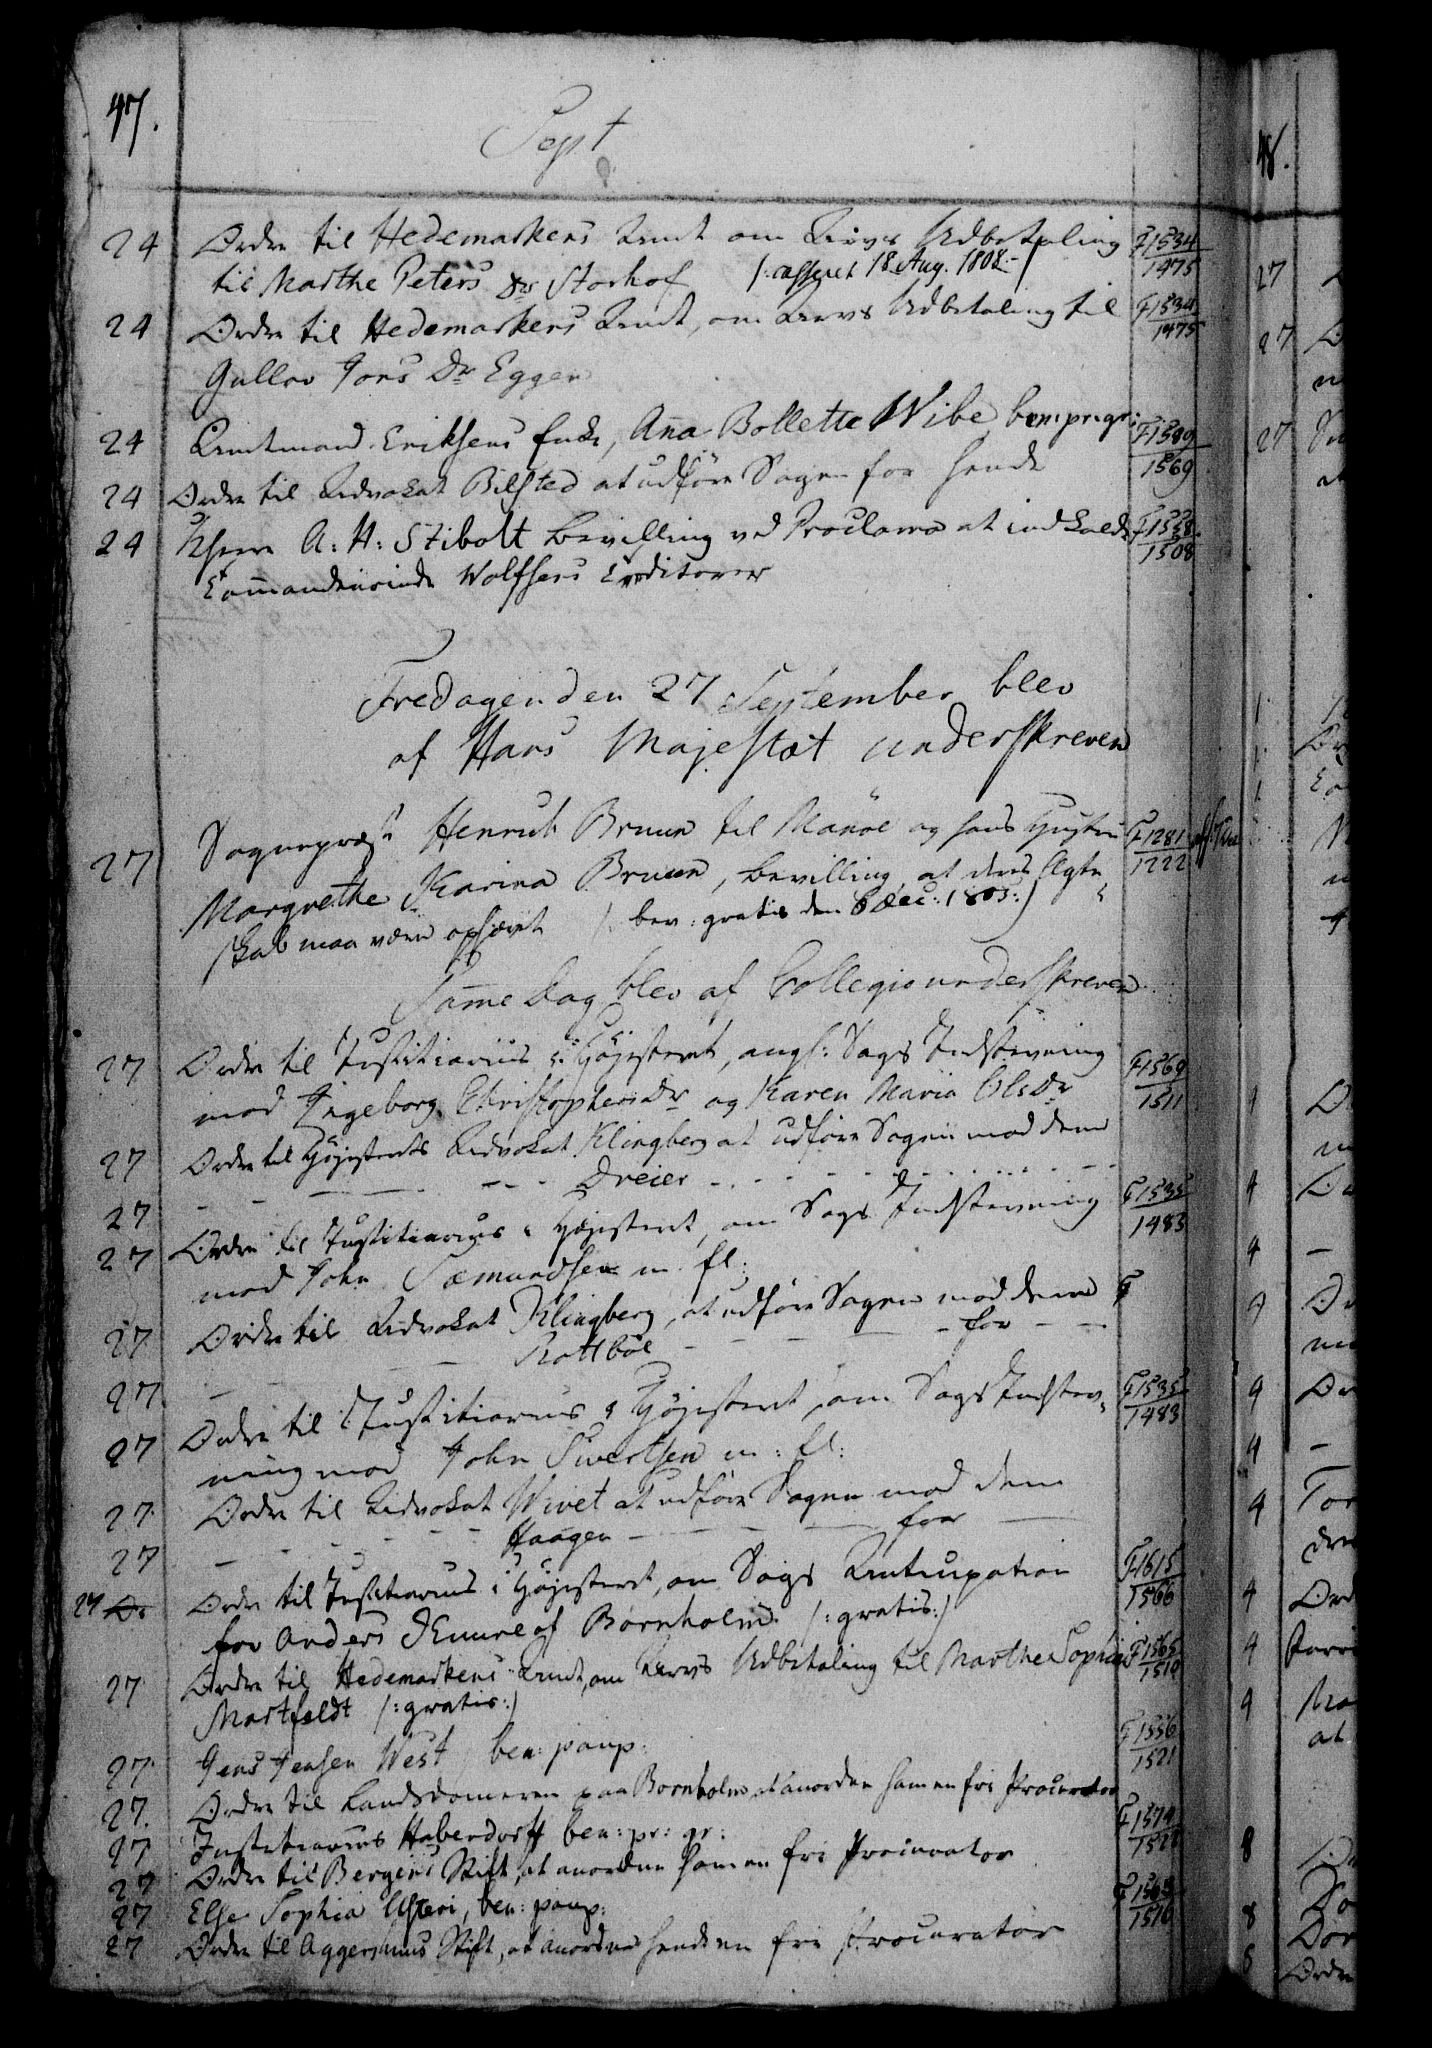 47.
Sept
24 Ordre til Hedemarkens Amt om Arvs Udbetaling F 1534/1475
til Marthe Peters Dr Storhof /: casseret 18 Aug. 1808 :/
24 Ordre til Hedemarkens Amt, om Arvs Udbetaling til F 1534/1475
Gullov Jons Dr Eggen
24 Amtmand Eriksens Enke, Ana Bollette Wibe, ben: pr: gr: F 1589/1569
24 Ordre til Advokat Bilsted at udföre Sagen for hende
24 A: H: Stibolt Bevilling ved Proclama at indkalde F 1558/1508
Commandeurinde Wolfsens Creditorer
Fredagen den 27 September blev
af Hans Majestæt underskreven
27 Sognepræst Henrik Bruun til Manöe og hans Hustru F 1281/1222
Margrethe Karina Bruun, Bevilling, at deres Ægte-
skab maa være ophævet /: bev: gratis den 6 Dec: 1805 :/
Same Dag blev af Collegio underskreven
27 Ordre til Justitiarius i Höjesteret, angl: Sags Indstevning F 1569/1511
mod Ingeborg Christophers Dr og Karen Maria Ols Dr
27 Ordre til Höjesterets Advokat Klingberg at udföre Sagen mod dem
27 - - - Dreier - - -
27 Ordre til Justitiarius i Höjesteret, om Sags Indstevning F 1535/1483
mod John Sæmundsen m. fl:
27 Ordre til Advokat Klingberg, at udföre Sagen mod dem F
27 - - - Rottböe - - - for - -
27 Ordre til Justitiarius i Höjesteret, om Sags Indstev- F 1535/1483
ning mod John Sivertsen m: fl:
27 Ordre til Advokat Wivet at udföre Sagen mod dem
27 - - - Haagen - - - for -
27 Ordre til Justitiarius i Höjesteret, om Sags Anticipation F 1615/1566
for Anders Kuure af Bornholm /: gratis :/
27 Ordre til Hedemarkens Amt, om Arvs Udbetaling til Marthe Sophia F 1565/1510
Martfeldt /: gratis :/
27 Jens Jensen West, ben: paup: F 1556/1521
27. Ordre til Landsdomeren paa Bornholm, at anordne ham en fri Procurator
27 Justitiarius Haberdorff ben: pr: gr: F 1574
27 Ordre til Bergens Stift, at anordne ham en fri Procurator
27 Else Sophia ben: paup: F 1565/1516
27 Ordre til Aggershuus Stift, at anordne hende en fri Procurator
48.